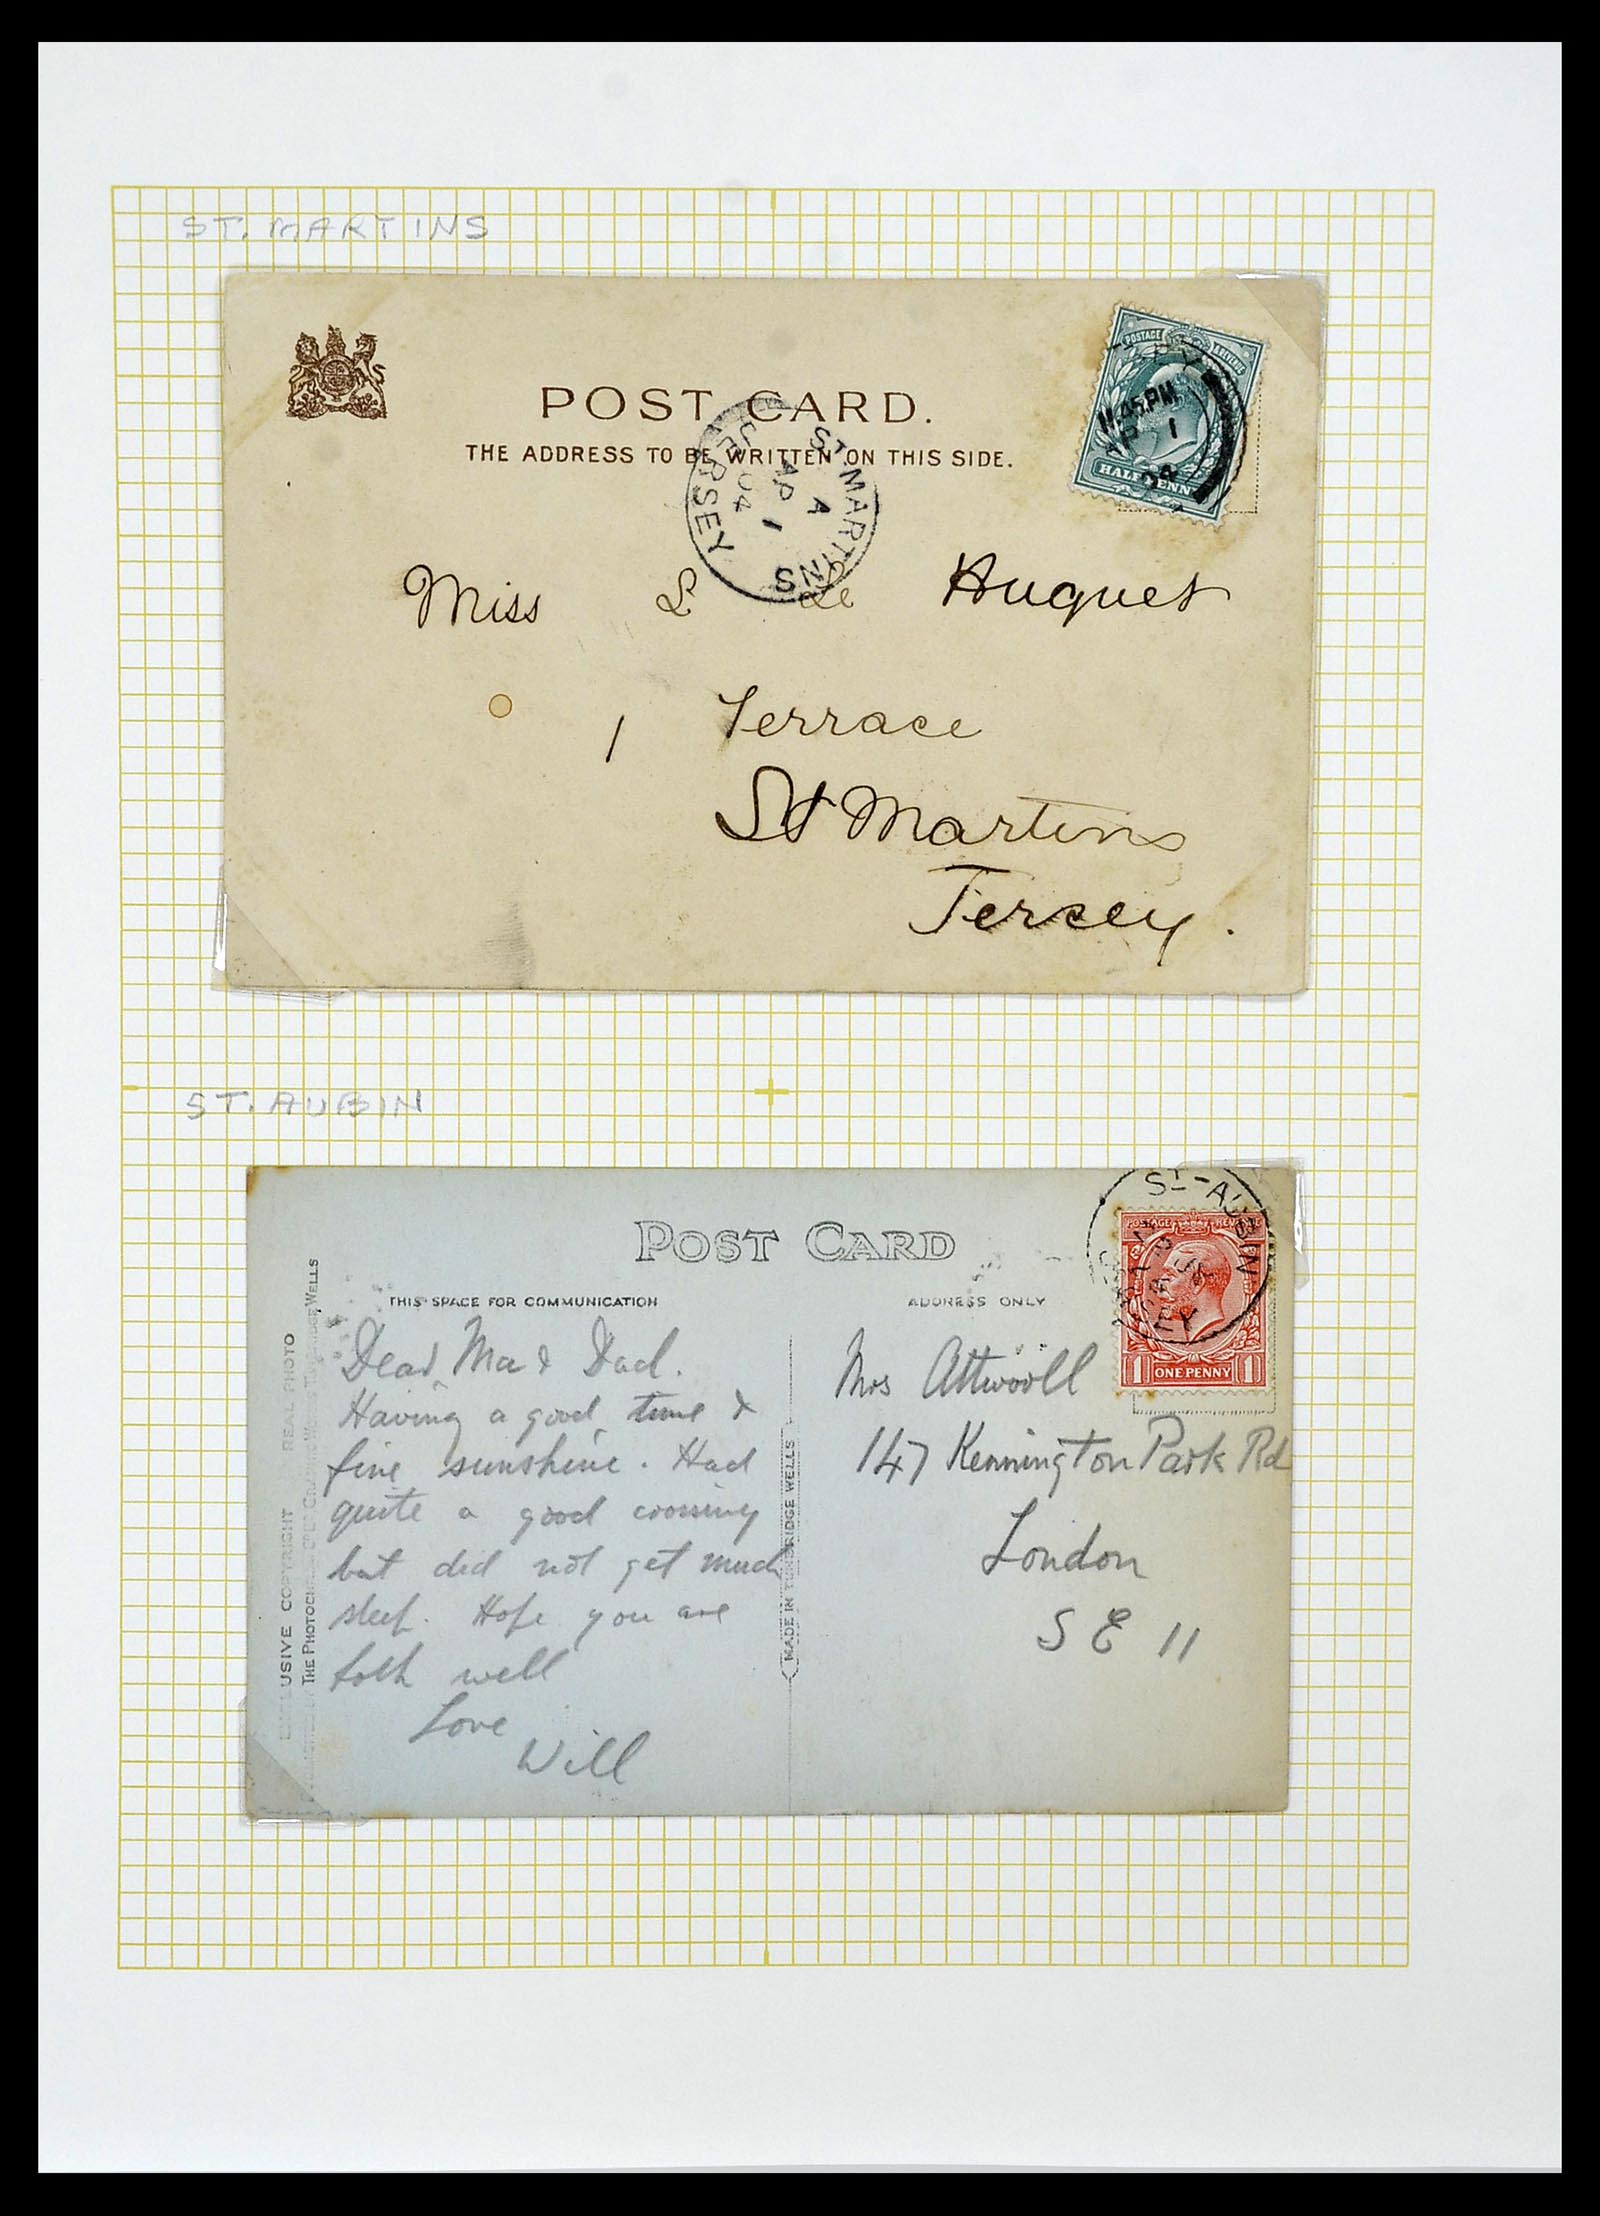 ST. MARTINS
POST CARD.
THE ADDRESS TO BE WRITTEN ON THIS SIDE.
POSTAGE
HALFPENNY
11.45PM
AP 1
04
ST MARTINS
A
AP 1
04
JERSEY
Miss L Le Huquet
1 Terrace
St Martins
Jersey.
ST. AUBIN
POST CARD
THIS SPACE FOR COMMUNICATION
ADDRESS ONLY
ST-AUBIN
POSTAGE REVENUE
1 ONE PENNY 1
EXCLUSIVE COPYRIGHT REAL PHOTO
MADE IN TUNBRIDGE WELLS
Dear Ma & Dad.
Having a good time &
fine sunshine. Had
quite a good crossing
but did not get much
sleep. Hope you are
both well
Love
Will
Mrs Attwooll
147 Kennington Park Rd
London
S E 11